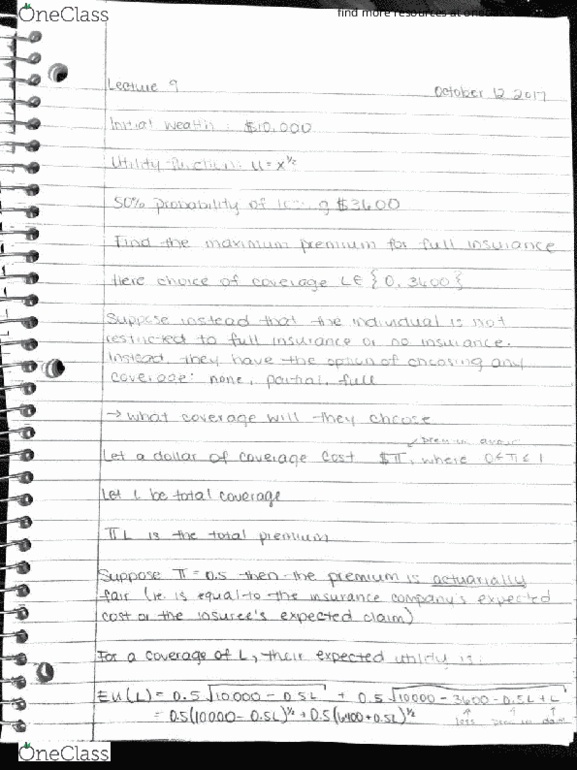 OneClass
find more resources at
Lecture 9 October 12 2017
Initial wealth : $10,000
Utility function: u = x^½
50% probability of $3600
Find the maximum premium for full insurance
Here choice of coverage L∈ {0, 3600}
Suppose instead that the individual is not
restricted to full insurance or no insurance.
Instead, they have the option of choosing any
coverage: none, partial, full
→ what coverage will they choose
Let a dollar of coverage cost $π, where 0≤π≤1
Let L be total coverage
πL is the total premium
Suppose π = 0.5 then the premium is actuarially
fair (ie. is equal to the insurance company's expected
cost or the insuree's expected claim)
For a coverage of L, their expected utility is:
EU(L) = 0.5 √(10000 - 0.5L) + 0.5 √(10000 - 3600 - 0.5L + L)
= 0.5(10000 - 0.5L)^½ + 0.5(6400 + 0.5L)^½
loss
OneClass